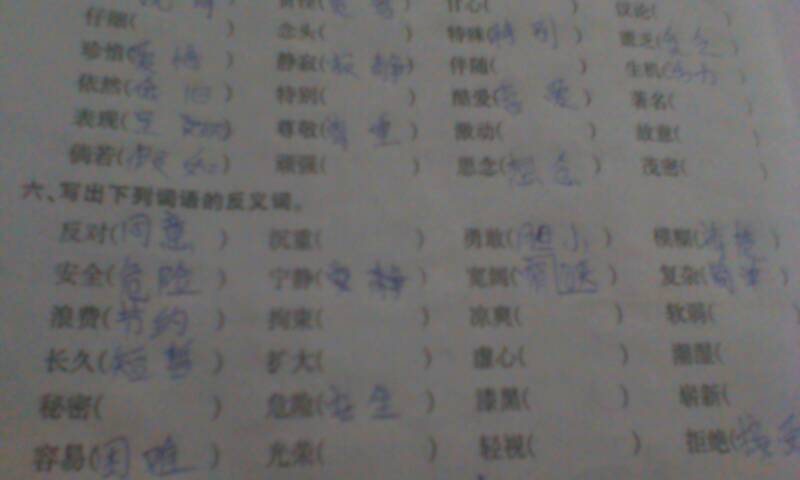 仔细( ) 念头( ) 特殊(特别) 贫乏( )
珍惜(爱惜) 静寂(寂静) 伴随( ) 生机( )
依然(依旧) 特别( ) 酷爱( 爱) 著名( )
表现( ) 尊敬(尊重) 激动( ) 故意( )
倘若(假如) 顽强( ) 思念(想念) 茂密( )
六、写出下列词语的反义词。
反对(同意) 沉重( ) 勇敢(胆小) 模糊(清楚)
安全(危险) 宁静(安静) 宽阔( ) 复杂(简单)
浪费(节约) 拘束( ) 凉爽( ) 软弱( )
长久(短暂) 扩大( ) 虚心( ) 潮湿( )
秘密( ) 危险( ) 漆黑( ) 崭新(
容易(困难) 光荣( ) 轻视( ) 拒绝(接受